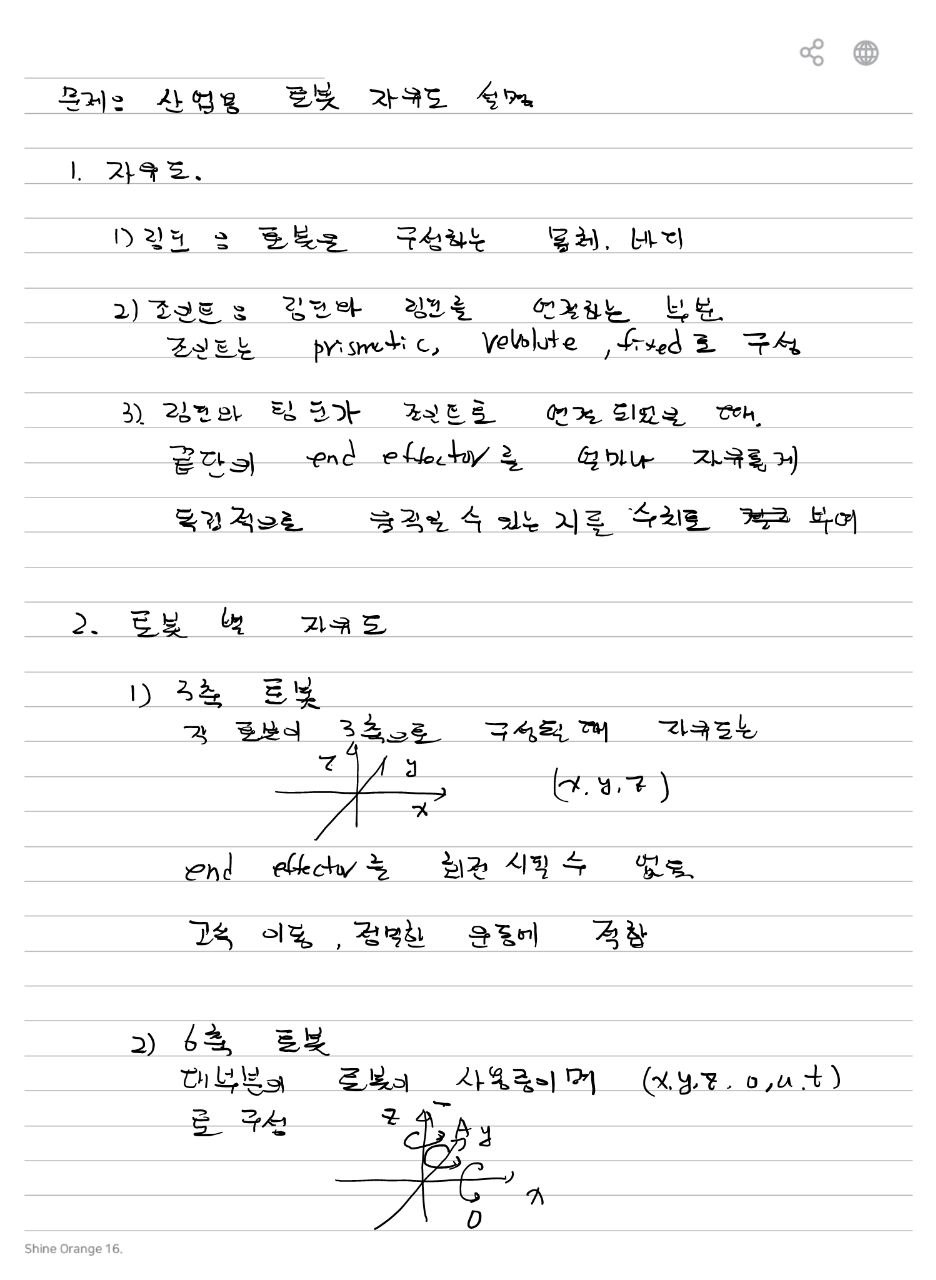 문제: 산업용 로봇 자유도 설명
1. 자유도.
1) 링크 : 로봇을 구성하는 물체. 바디
2) 조인트 : 링크와 링크를 연결하는 부분.
조인트는 prismatic, revolute, fixed로 구성
3) 링크와 링크가 조인트로 연결 되었을 때.
끝단의 end effector를 얼마나 자유롭게
독립적으로 움직일 수 있는 지를 수치로 보여
2. 로봇 별 자유도
1) 3축 로봇
각 로봇이 3축으로 구성될 때 자유도는
z y
x
(x. y. z)
end effector를 회전 시킬 수 없음
고속 이동, 정밀한 운동에 적합
2) 6축 로봇
대부분의 로봇이 사용중이며 (x.y.z. o,a.t)
로 구성
z T A y
x
O
Shine Orange 16.